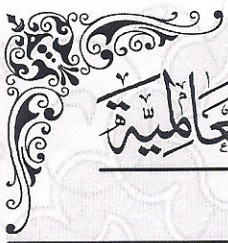 عالميّة